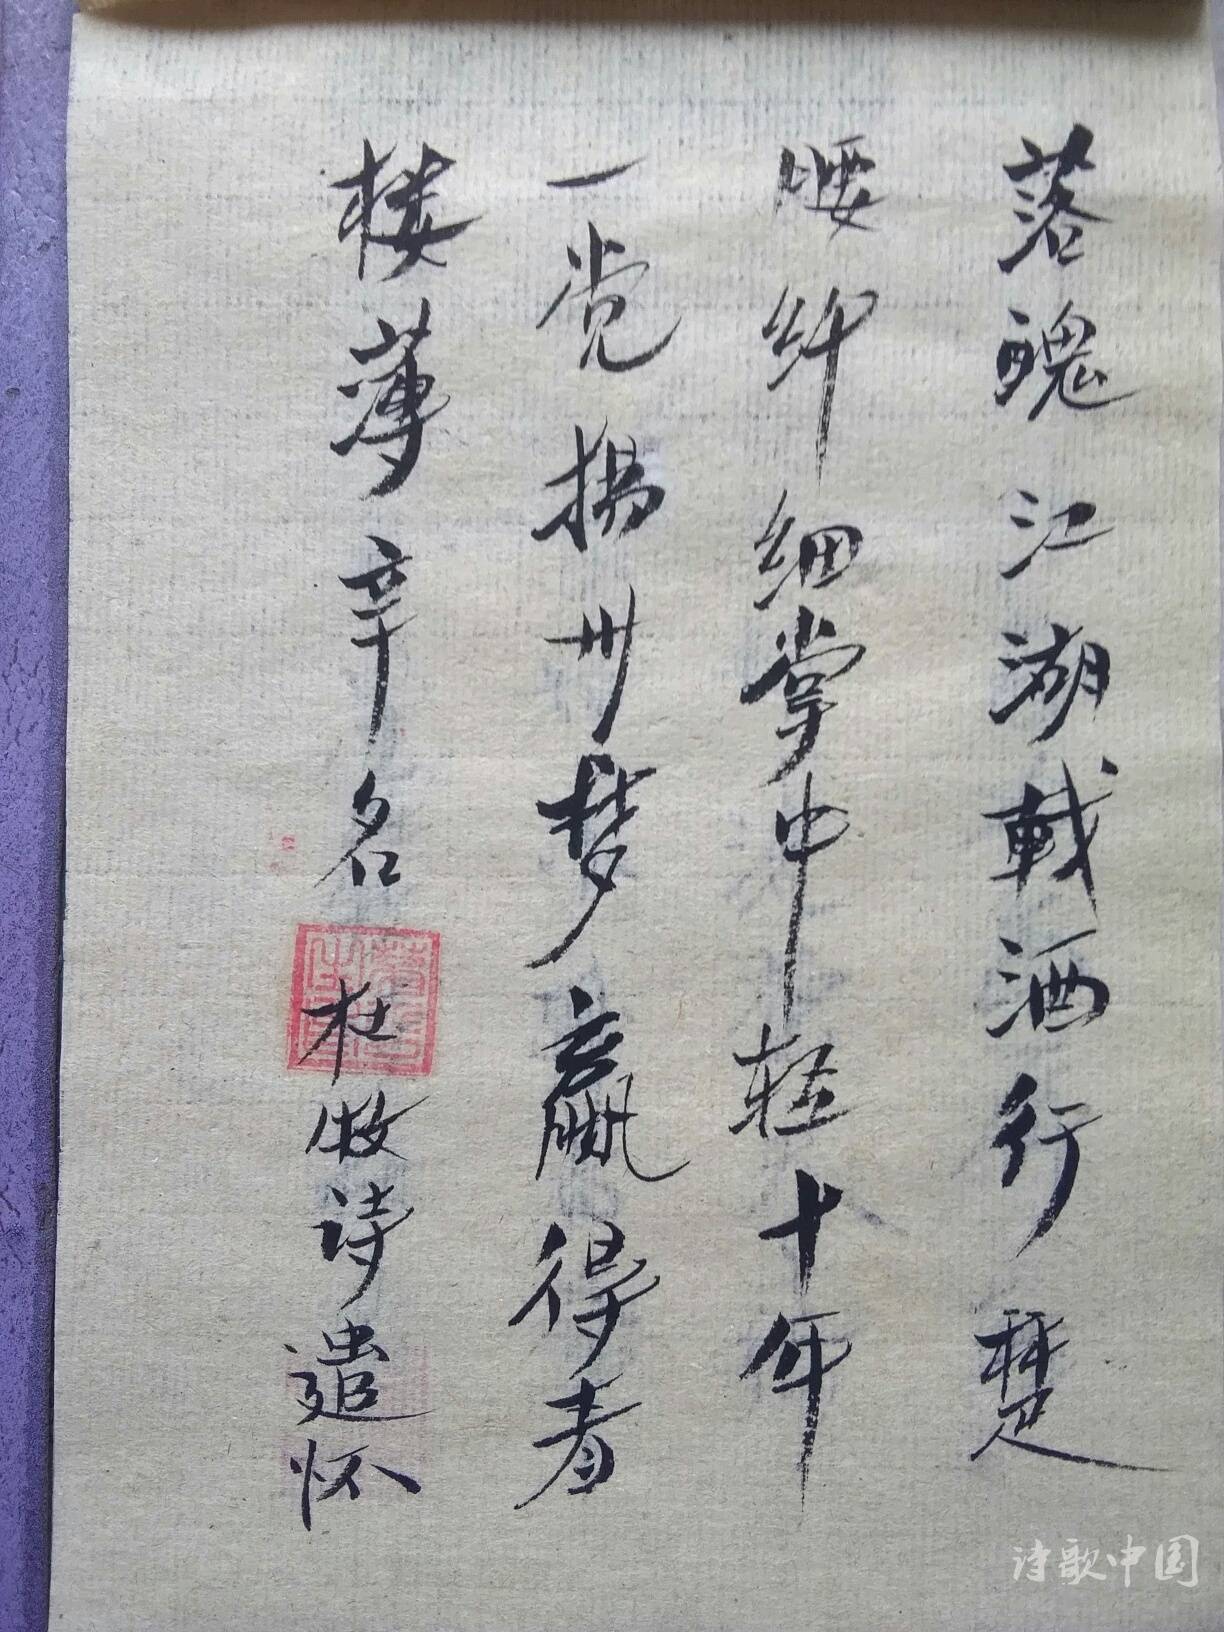 落魄江湖载酒行楚
腰纤细掌中轻十年
一觉扬州梦赢得青
楼薄幸名 杜牧诗遣怀
诗歌中国